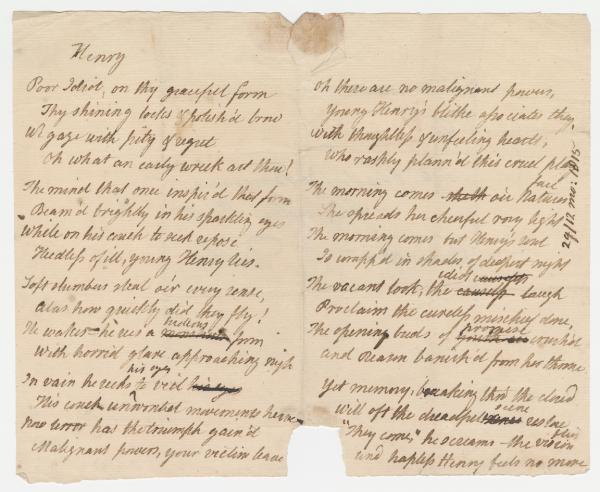 Henry
Poor Idiot, on thy graceful form
Thy shining locks & polish'd brow
We gaze with pity & regret
Oh what an early wreck art thou!
The mind that once inspir'd that form
Beam'd brightly in his sparkling eyes
While on his couch to seek repose
Heedless of ill, young Henry lies.
Soft slumbers steal o'er every sense,
Alas how quickly did they fly!
hideous
He wakes—he sees a form
With horrid glare approaching nigh
his eyes
In vain he seeks to veil his eyes
His couch unwonted movements heave
Now terror has the triumph gain'd
Malignant powers, your victim leave
Oh there are no malignant powers,
Young Henry's blithe associates they,
With thoughtless & unfeeling hearts,
Who rashly plann'd this cruel
face
The morning comes o'er Natures
She spreads her cheerful rosy light
The morning comes but Henry's soul
Is wrapp'd in shades of deepest night
idiot
The vacant look, the laugh
Proclaim the cureless mischief done,
promise
The opening buds of crush'd
and Reason banish'd from her throne
Yet memory, breaking thro' the cloud
scene
Will oft the dreadful restore
"They come," he screams—the vision
and hapless Henry feels no more
29/12 mo: 1815